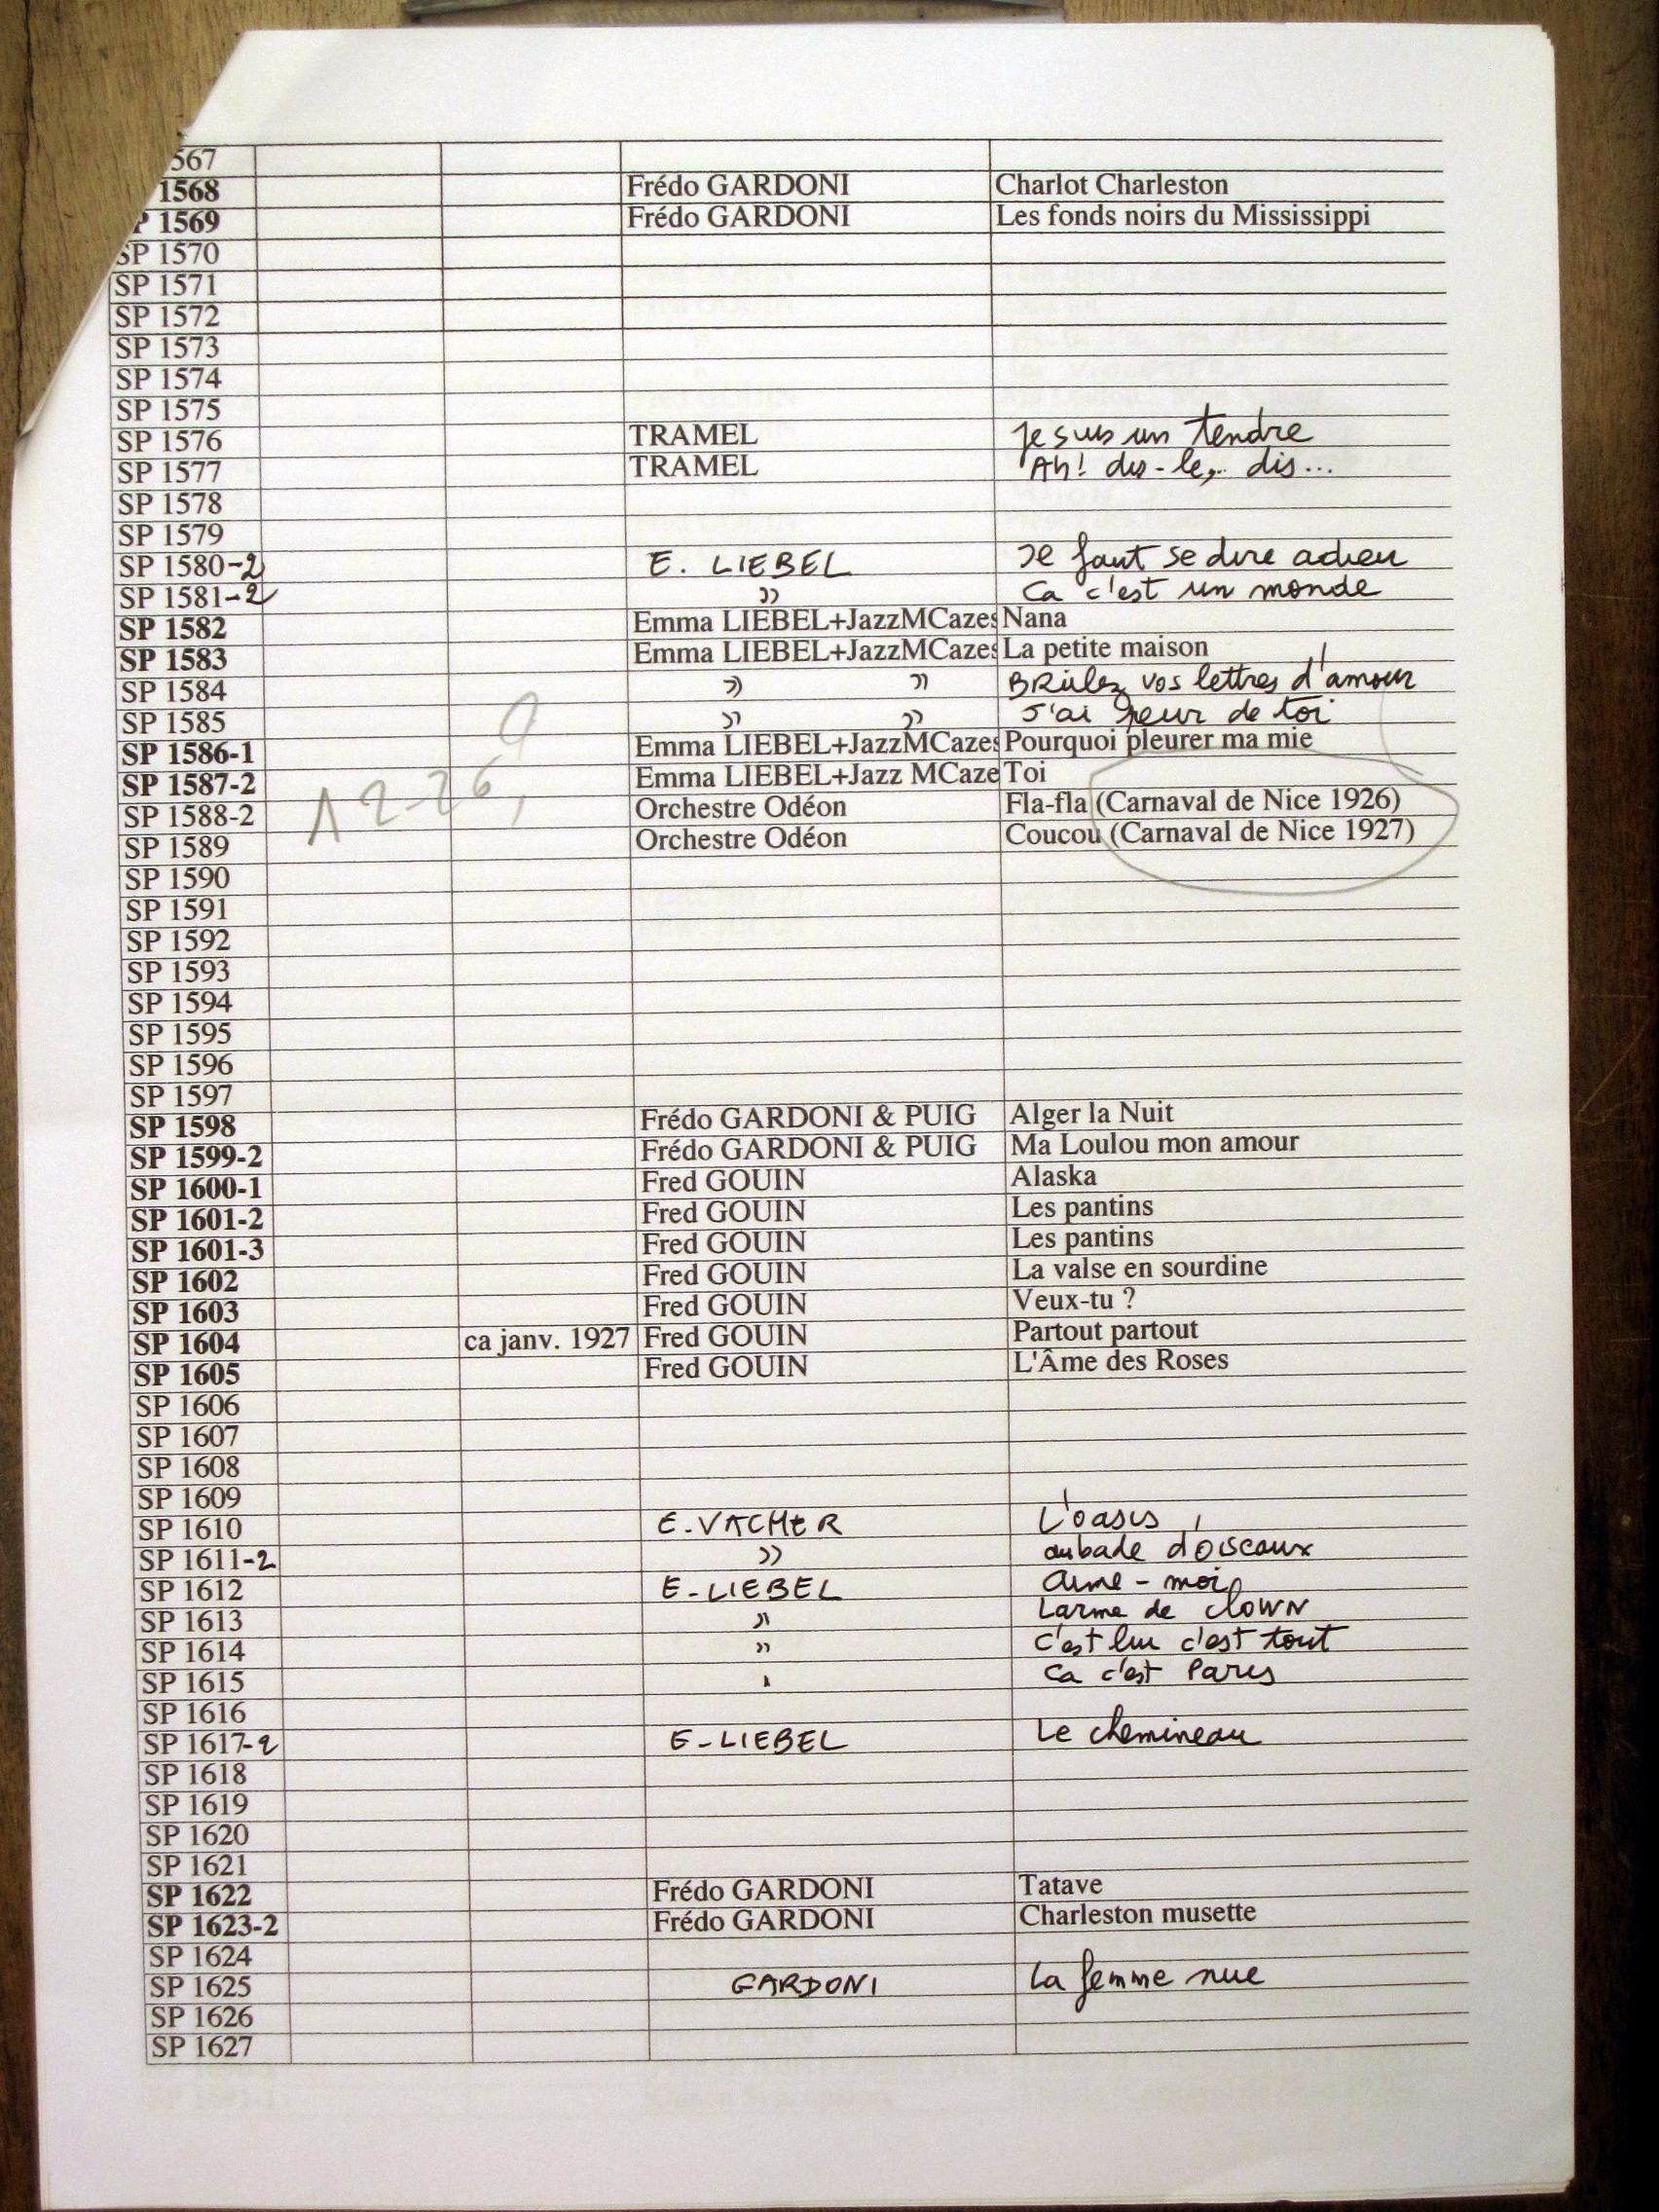 567
1568 Frédo GARDONI Charlot Charleston
P 1569 Frédo GARDONI Les fonds noirs du Mississippi
SP 1570
SP 1571
SP 1572
SP 1573
SP 1574
SP 1575
SP 1576 TRAMEL Je suis un tendre
SP 1577 TRAMEL Ah! dis-le, dis...
SP 1578
SP 1579
SP 1580-2 E. LIEBEL Il faut se dire adieu
SP 1581-2 " Ca c'est un monde
SP 1582 Emma LIEBEL+JazzMCazes Nana
SP 1583 Emma LIEBEL+JazzMCazes La petite maison
SP 1584 " " BRûlez vos lettres d'amour
SP 1585 " " J'ai peur de toi
SP 1586-1 Emma LIEBEL+JazzMCazes Pourquoi pleurer ma mie
SP 1587-2 Emma LIEBEL+Jazz MCaze Toi
12-26, ?
SP 1588-2 Orchestre Odéon Fla-fla (Carnaval de Nice 1926)
SP 1589 Orchestre Odéon Coucou (Carnaval de Nice 1927)
SP 1590
SP 1591
SP 1592
SP 1593
SP 1594
SP 1595
SP 1596
SP 1597
SP 1598 Frédo GARDONI & PUIG Alger la Nuit
SP 1599-2 Frédo GARDONI & PUIG Ma Loulou mon amour
SP 1600-1 Fred GOUIN Alaska
SP 1601-2 Fred GOUIN Les pantins
SP 1601-3 Fred GOUIN Les pantins
SP 1602 Fred GOUIN La valse en sourdine
SP 1603 Fred GOUIN Veux-tu ?
SP 1604 ca janv. 1927 Fred GOUIN Partout partout
SP 1605 Fred GOUIN L'Âme des Roses
SP 1606
SP 1607
SP 1608
SP 1609
SP 1610 E. VACHER L'oasis
SP 1611-2 " aubade d'oiseaux
SP 1612 E-LIEBEL aime-moi
SP 1613 " Larme de clOWN
SP 1614 " c'est lui c'est tout
SP 1615 " Ca c'est Paris
SP 1616
SP 1617-2 E-LIEBEL Le chemineau
SP 1618
SP 1619
SP 1620
SP 1621
SP 1622 Frédo GARDONI Tatave
SP 1623-2 Frédo GARDONI Charleston musette
SP 1624
SP 1625 GARDONI La femme nue
SP 1626
SP 1627